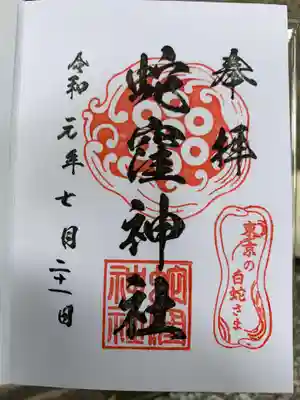 奉拝
蛇窪神社
令和元年七月二十一日
東京の
白蛇さま
蛇窪
神社